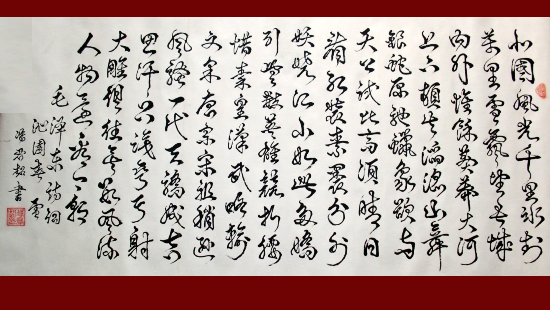 北國風光千里冰封
萬里雪飄望長城
内外惟餘莽莽大河
上下頓失滔滔山舞
銀蛇原馳蠟象欲與
天公試比高須晴日
看紅裝素裹分外
妖嬈江山如此多嬌
引無數英雄競折腰
惜秦皇漢武略輸
文采唐宗宋祖稍遜
風騷一代天驕成吉
思汗只識彎弓射
大雕俱往矣數風流
人物還看今朝
毛澤東詩詞
沁園春雪
書